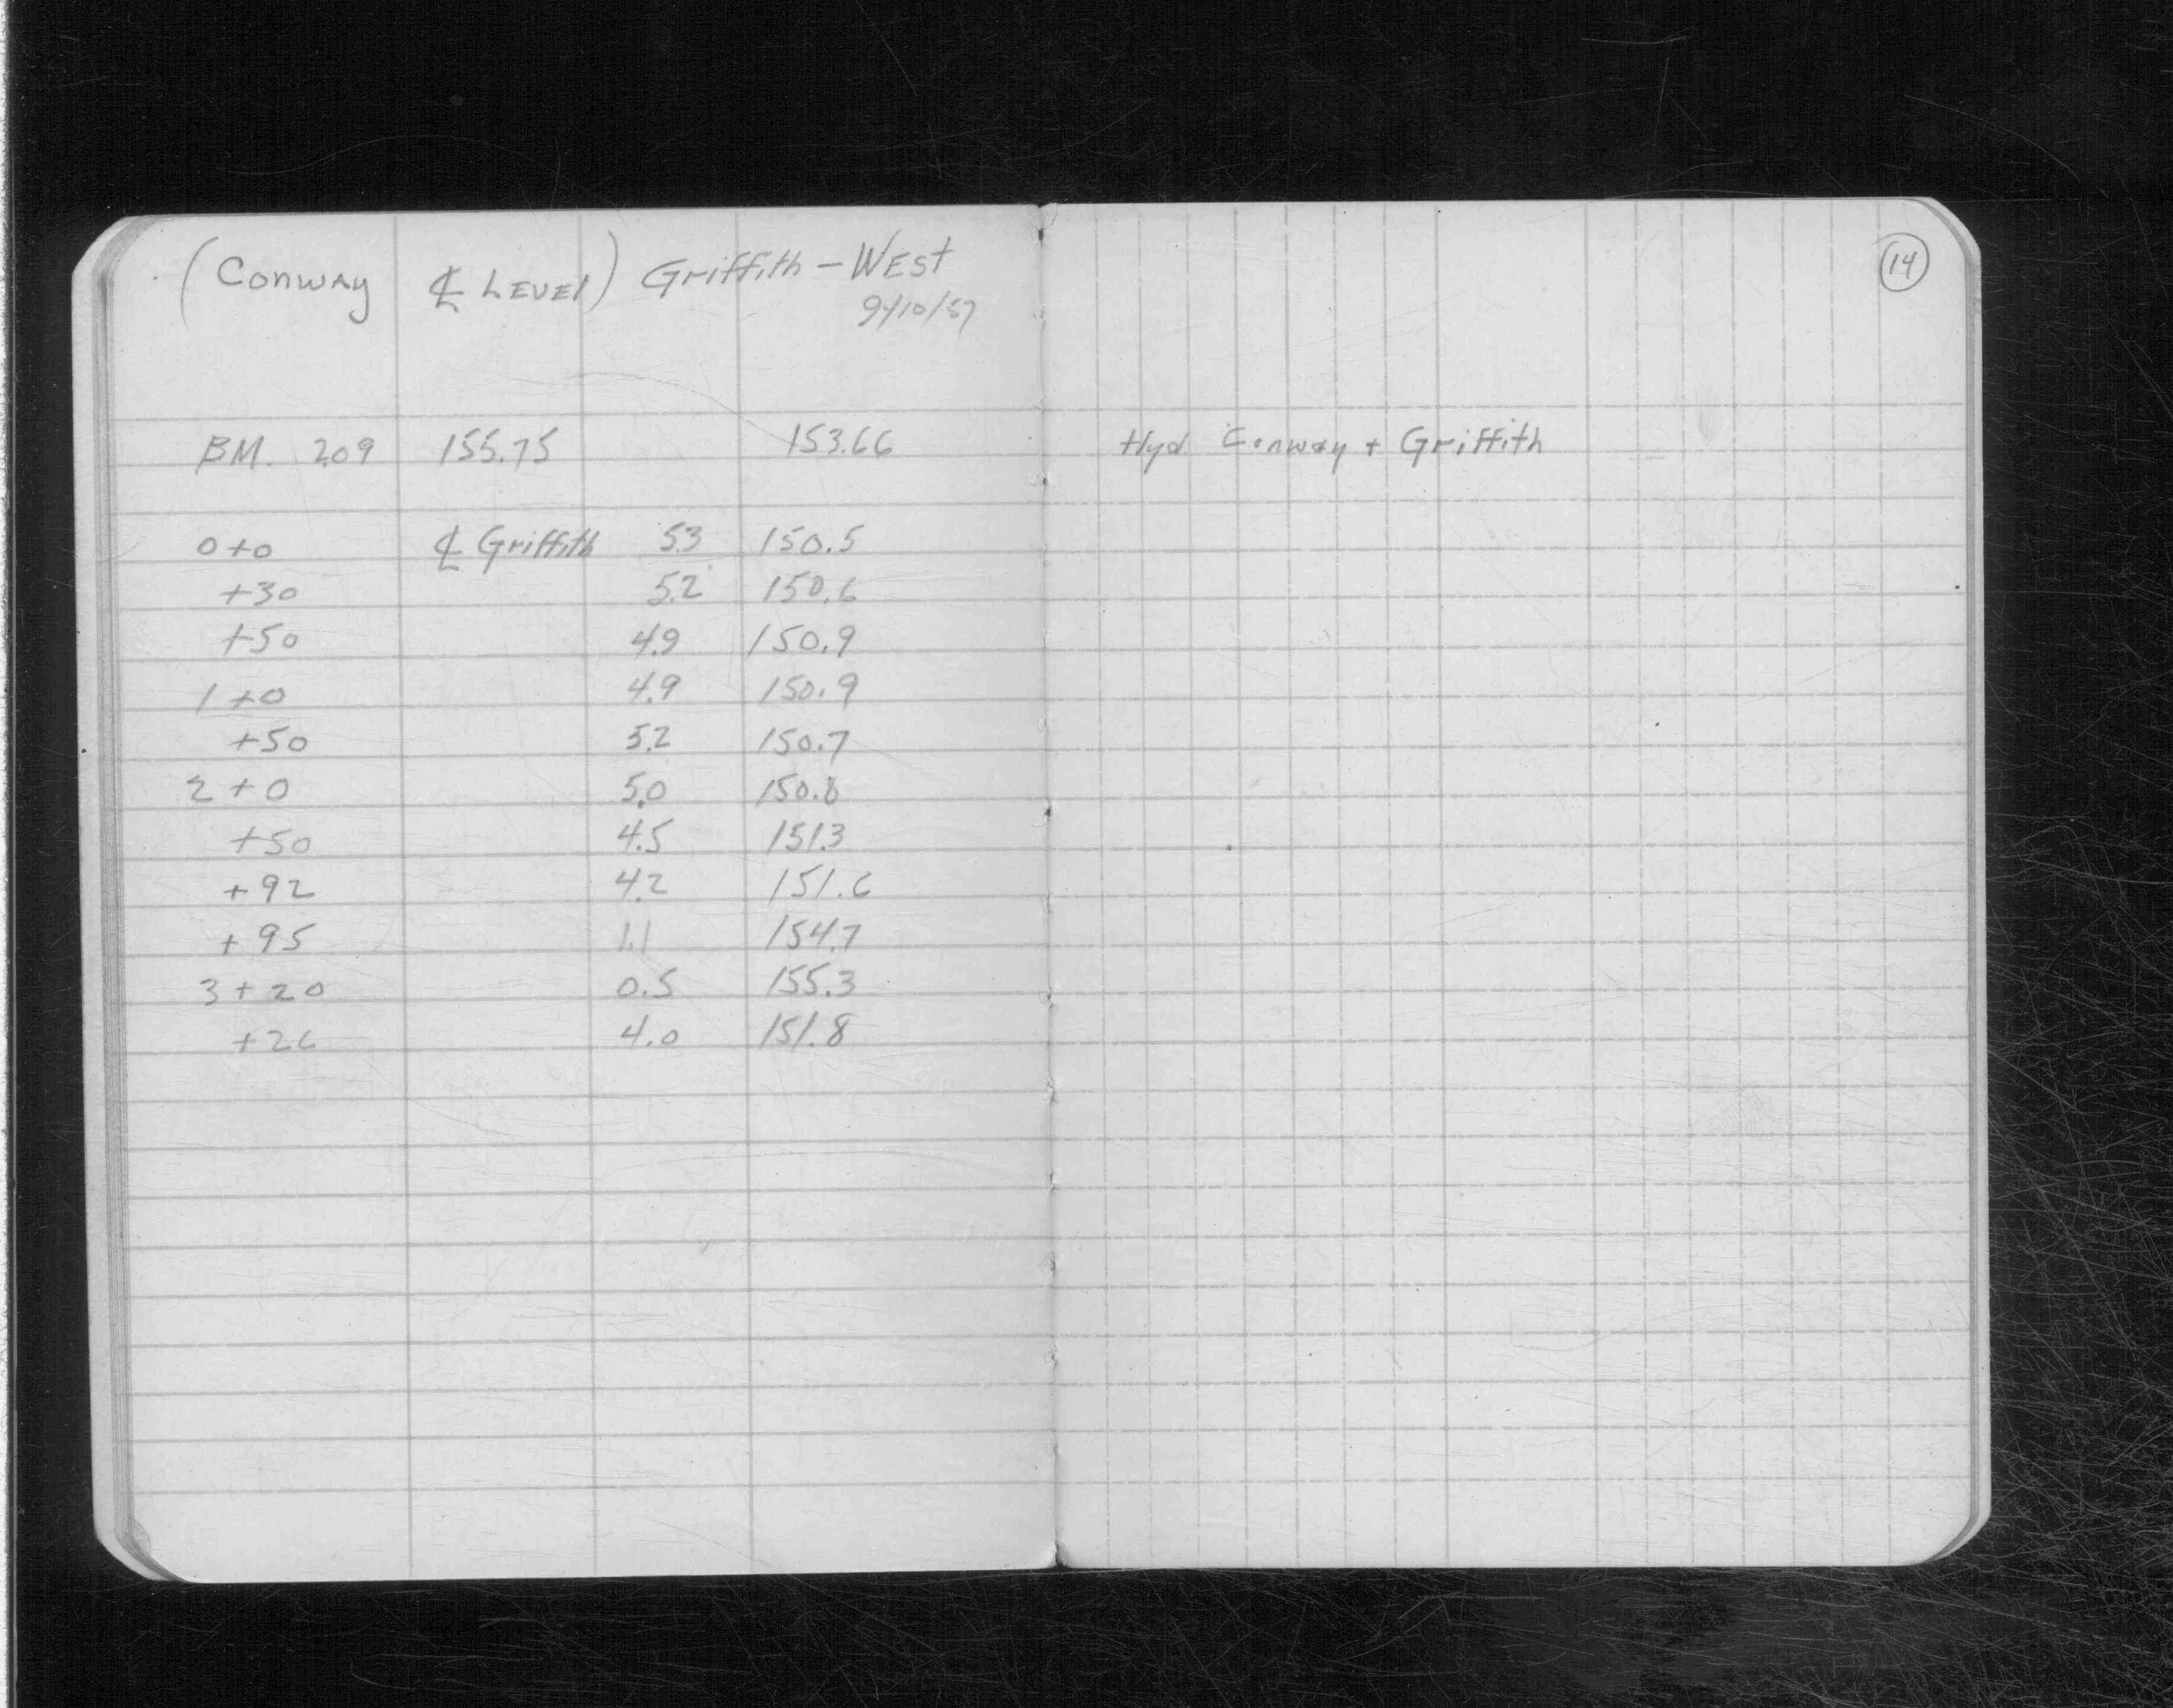 (Conway ℄ LEVEL) Griffith - WEST
9/10/57
14
BM. 2.09 155.75 153.66 Hyd Conway + Griffith
0+0 ℄ Griffith 5.3 150.5
+30 5.2 150.6
+50 4.9 150.9
1+0 4.9 150.9
+50 5.2 150.7
2+0 5.0 150.8
+50 4.5 151.3
+92 4.2 151.6
+95 1.1 154.7
3+20 0.5 155.3
+26 4.0 151.8